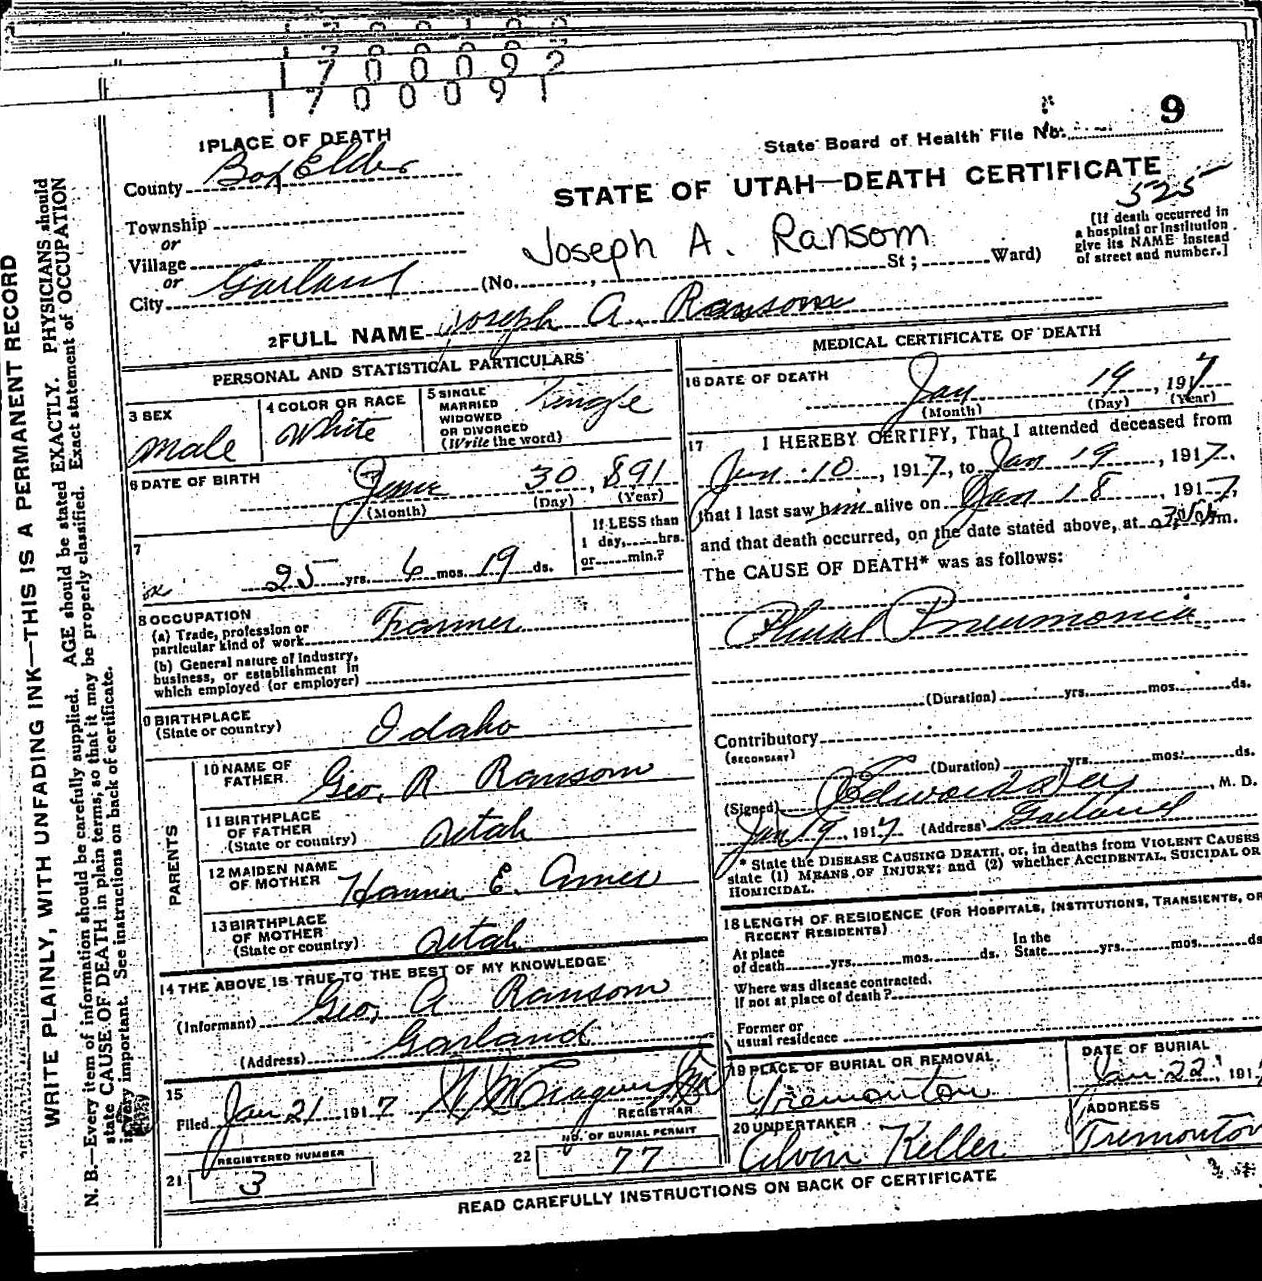 1700092
1700091
WRITE PLAINLY, WITH UNFADING INK—THIS IS A PERMANENT RECORD
N. B.—Every item of information should be carefully supplied. AGE should be stated EXACTLY. PHYSICIANS should
state CAUSE OF DEATH in plain terms, so that it may be properly classified. Exact statement of OCCUPATION
is very important. See instructions on back of certificate.
State Board of Health File No. 9
1 PLACE OF DEATH
County Box Elder
STATE OF UTAH—DEATH CERTIFICATE
525
Township
or
Village
or
City Garland
Joseph A. Ransom
(No. St; Ward)
[If death occurred in
a hospital or institution
give its NAME instead
of street and number.]
2 FULL NAME Joseph A. Ransom
PERSONAL AND STATISTICAL PARTICULARS
3 SEX
Male
4 COLOR OR RACE
White
5 SINGLE
MARRIED
WIDOWED
OR DIVORCED
(Write the word)
Single
6 DATE OF BIRTH
June 30, 1891
(Month) (Day) (Year)
7
25 yrs. 6 mos. 19 ds.
If LESS than
1 day, hrs.
or min.?
8 OCCUPATION
(a) Trade, profession or
particular kind of work Farmer
(b) General nature of industry,
business, or establishment in
which employed (or employer)
9 BIRTHPLACE
(State or country) Idaho
PARENTS
10 NAME OF
FATHER Geo. R Ransom
11 BIRTHPLACE
OF FATHER
(State or country) Utah
12 MAIDEN NAME
OF MOTHER E.
13 BIRTHPLACE
OF MOTHER
(State or country) Utah
14 THE ABOVE IS TRUE TO THE BEST OF MY KNOWLEDGE
(Informant) Geo. A Ransom
(Address) Garland
15
Filed Jan 21 1917
REGISTRAR
REGISTERED NUMBER
21 3
NO. OF BURIAL PERMIT
22 77
MEDICAL CERTIFICATE OF DEATH
16 DATE OF DEATH
Jan 19, 1917
(Month) (Day) (Year)
17 I HEREBY CERTIFY, That I attended deceased from
Jan 10, 1917, to Jan 19, 1917,
that I last saw him alive on Jan 18, 1917,
and that death occurred, on the date stated above, at m.
The CAUSE OF DEATH* was as follows:
Plural Pneumonia
(Duration) yrs. mos. ds.
Contributory
(SECONDARY)
(Duration) yrs. mos. ds.
(Signed) , M. D.
Jan 19, 1917 (Address) Garland
* State the DISEASE CAUSING DEATH, or, in deaths from VIOLENT CAUSES
state (1) MEANS OF INJURY; and (2) whether ACCIDENTAL, SUICIDAL OR
HOMICIDAL.
18 LENGTH OF RESIDENCE (FOR HOSPITALS, INSTITUTIONS, TRANSIENTS, OR
RECENT RESIDENTS)
At place
of death yrs. mos. ds.
In the
State yrs. mos. ds
Where was disease contracted.
If not at place of death?
Former or
usual residence
19 PLACE OF BURIAL OR REMOVAL
Tremonton
DATE OF BURIAL
Jan 22, 191
20 UNDERTAKER
Alvin Keller
ADDRESS
Tremonton
READ CAREFULLY INSTRUCTIONS ON BACK OF CERTIFICATE